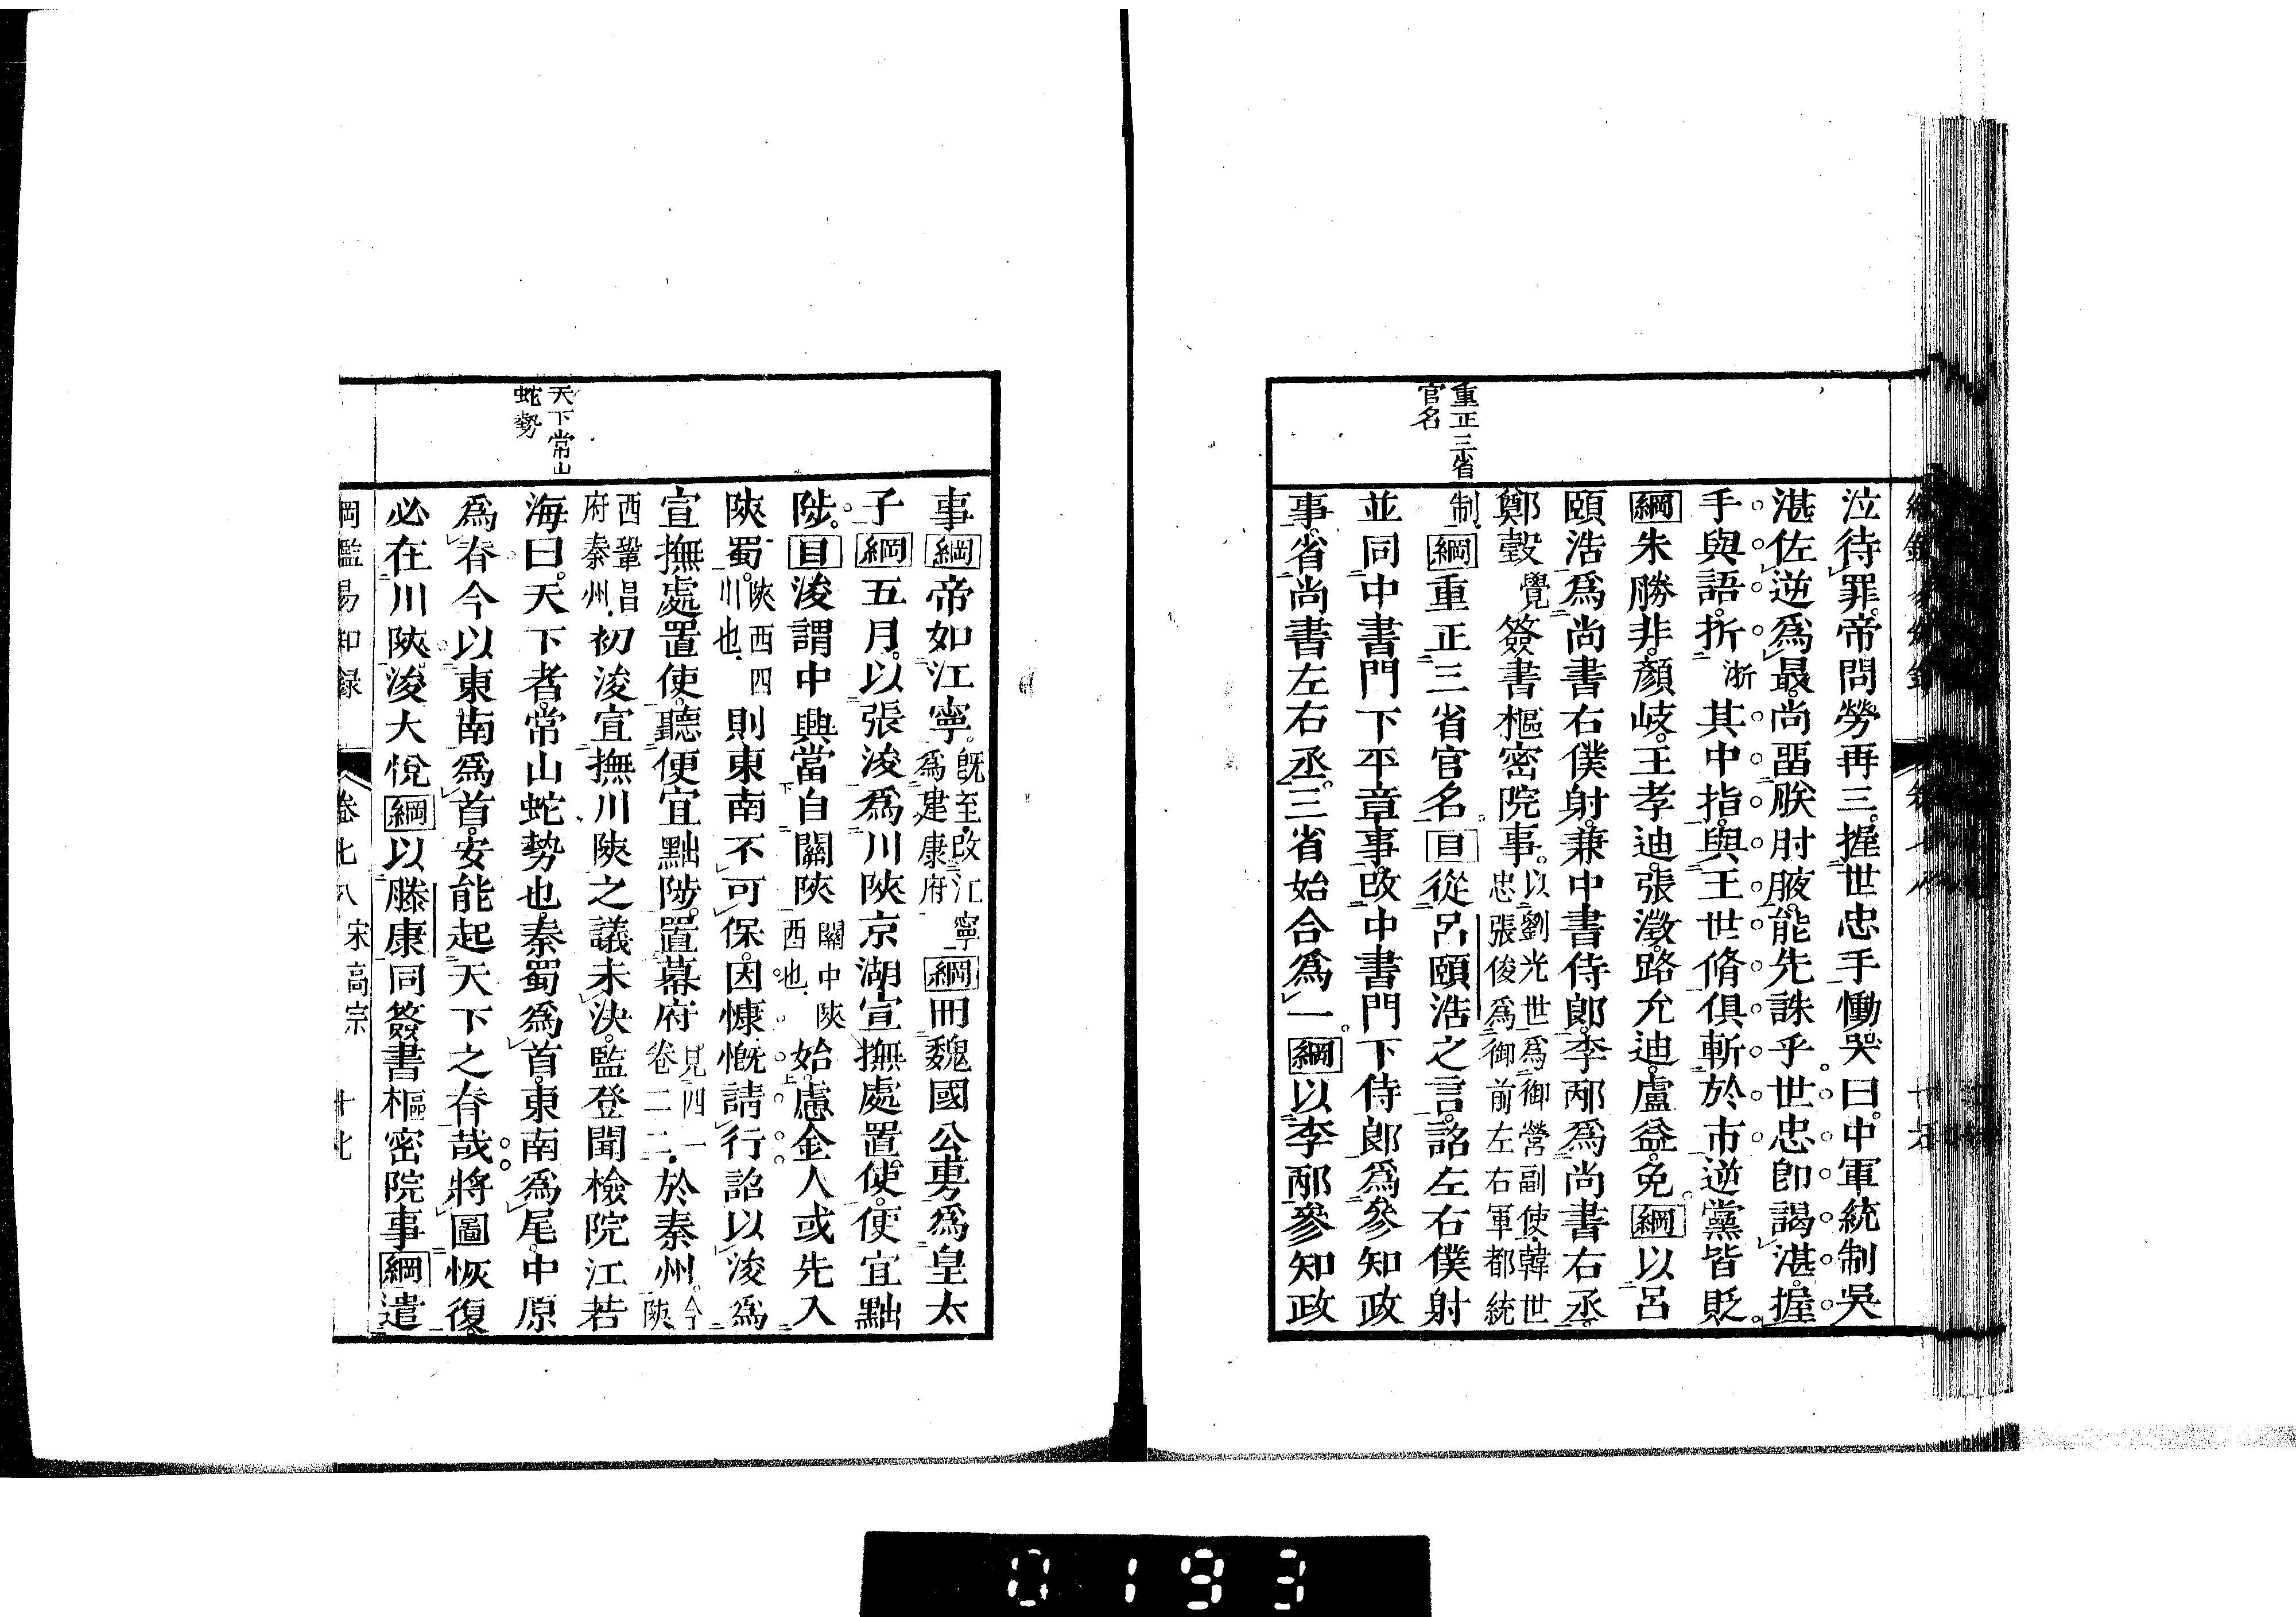 重正三省
官名
泣待罪。帝問勞再三。握世忠手慟哭曰。中軍統制吳
湛佐逆爲最。尚畱朕肘腋。能先誅乎。世忠即謁湛。握
手與語。折浙其中指。與王世脩俱斬於市。逆黨皆貶。
綱朱勝非。顏岐。王孝迪。張澂。路允迪。盧益。免。綱以呂
頤浩爲尚書右僕射。兼中書侍郎。李邴爲尚書右丞。
鄭瑴覺簽書樞密院事。以劉光世爲御營副使。韓世忠張俊爲御前左右軍都統
制。綱重正三省官名。目從呂頤浩之言。詔左右僕射
並同中書門下平章事。改中書門下侍郎爲參知政
事。省尚書左右丞。三省始合爲一。綱以李邴參知政
天下常山
蛇勢
事綱帝如江寧。既至。改江寧爲建康府綱冊魏國公旉爲皇太
子綱五月。以張浚爲川陝京湖宣撫處置使。便宜黜
陟。目浚謂中興當自關陝關中陝西也。始。慮金人或先入
陝蜀。陝西四川也。則東南不可保。因慷慨請行。詔以浚爲
宣撫處置使。聽便宜黜陟。置幕府見四一卷二二。於秦州。今陝
西鞏昌府秦州。初浚宣撫川陝之議未決。監登聞檢院江若
海曰。天下者。常山蛇勢也。秦蜀爲首。東南爲尾。中原
爲脊。今以東南爲首。安能起天下之脊哉。將圖恢復。
必在川陝。浚大悅綱以滕康同簽書樞密院事綱遣
綱鑑易知錄 卷七八 宋高宗 十九
0193